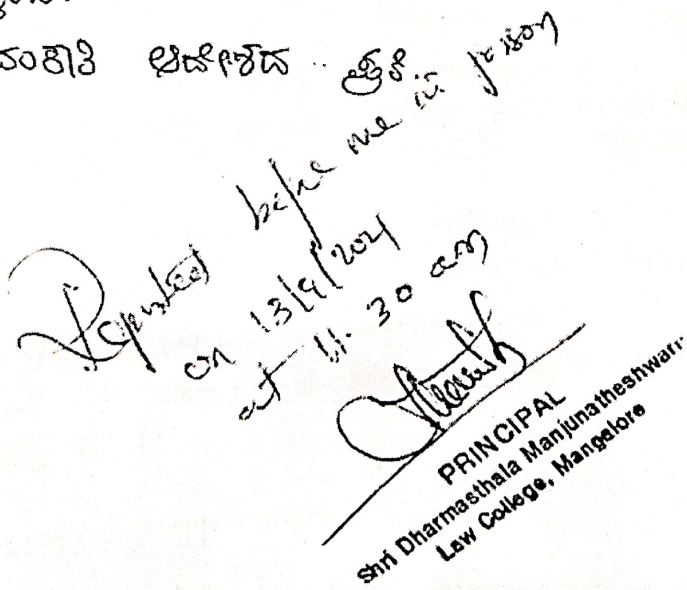 ಆದೇಶದ ಪ್ರತಿ
Reported before me in person
on 13/9/2021
at 11.30 am
PRINCIPAL
Shri Dharmasthala Manjunatheshwara
Law College, Mangalore